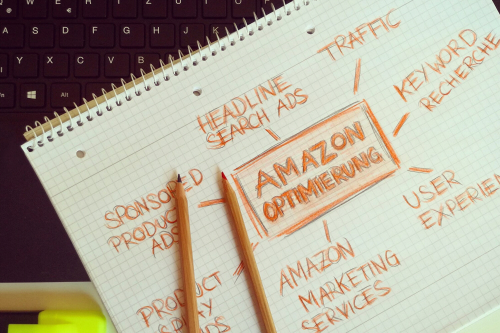 TRAFFIC
HEADLINE
SEARCH ADS
KEYWORD
RECHERCHE
AMAZON
OPTIMIERUNG
SPONSORED
PRODUCT
ADS
USER
EXPERIEN
AMAZON
MARKETING
SERVICES
PRODUCT